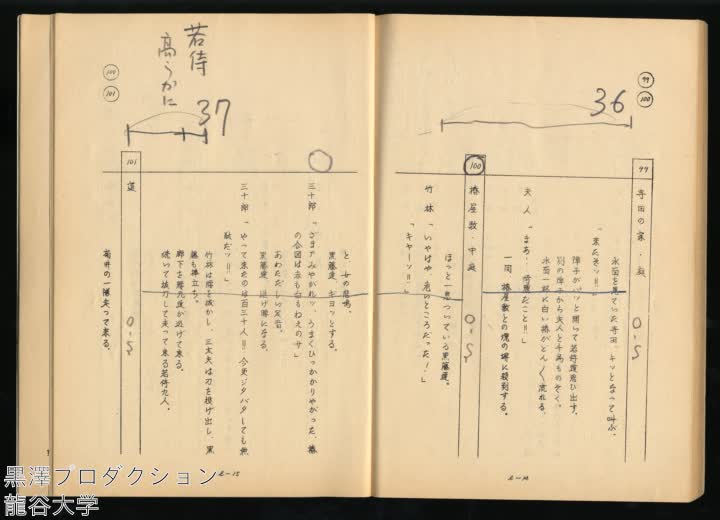 99
100
36
99
寺田の家・庭
水面を見ていた寺田、キッとなって叫ぶ。
「来たぞッ!!」
障子がパッと開いて若侍達飛び出す。
別の障子から夫人と千鳥ものぞく。
水面一杯に白い椿がどんどん流れる。
夫人「まあ、綺麗だこと!!」
一同、椿屋敷との境の塀に殺到する。
100
椿屋敷・中庭
ほっと一息ついている黒藤達。
竹林「いやはや、危いところだった!」
「キャーッ!!」
E-14
若侍
高らかに
37
100
101
と、女の悲鳴。
黒藤達、ギョッとする。
三十郎「ざまアみやがれッ、うまくひっかかりやがった、椿
の合図は赤も白もねえのサ」
あわただしい足音。
黒藤達、逃げ腰になる。
三十郎「やって来たのは百三十人!! 今更ジタバタしても無
駄だッ!!」
竹林は腰を抜かし、三太夫は刀を投げ出し、黒
藤も棒立ち。
廊下を腰元達が逃げて来る。
続いて抜刀して走って来る若侍九人。
101
道
菊井の一隊走って来る。
E-15
黒澤プロダクション
龍谷大学